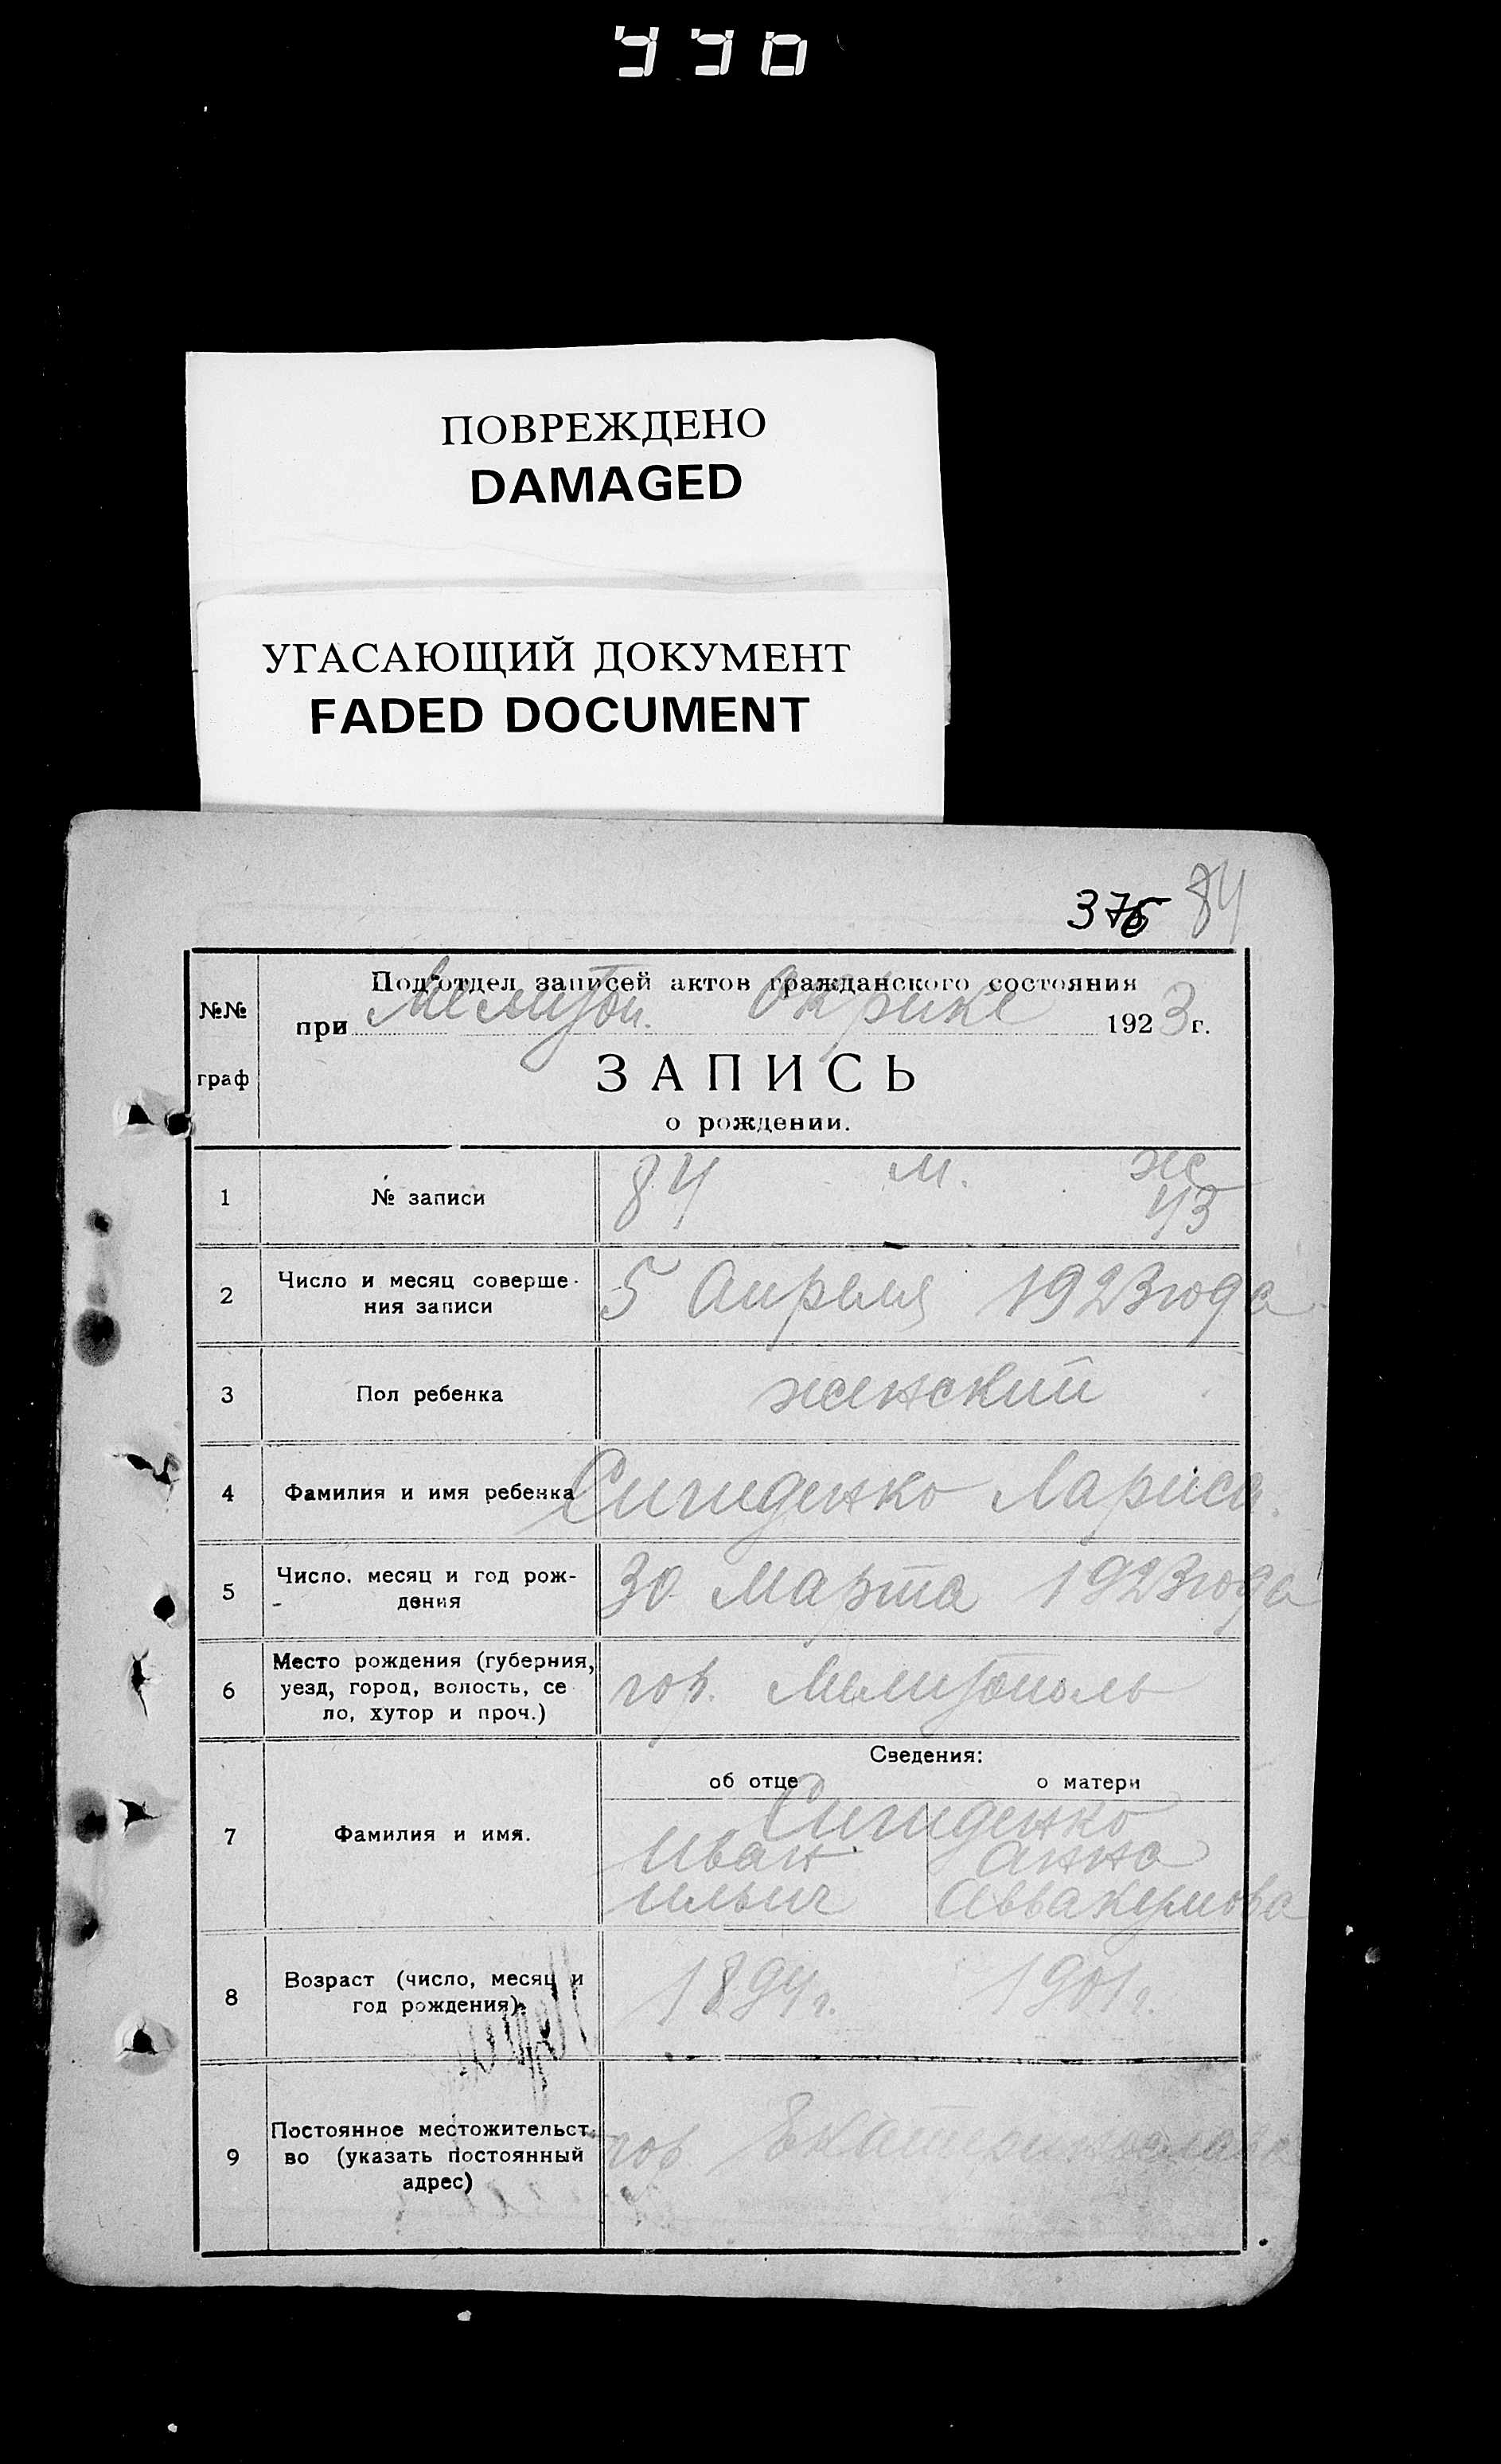 ПОВРЕЖДЕНО
DAMAGED
УГАСАЮЩИЙ ДОКУМЕНТ
FADED DOCUMENT
84
№№
граф
Подотдел записей актов гражданского состояния
при Мелитоп. Окрике 1923 г.
ЗАПИСЬ
о рождении.
1 № записи 84 м. ж 43
2 Число и месяц соверше-
ния записи
5 Апреля 1923 года
3 Пол ребенка женский
4 Фамилия и имя ребенка Сигиденко Лариса
5 Число, месяц и год рож-
дения
30 Марта 1923 года
6 Место рождения (губерния,
уезд, город, волость, се
ло, хутор и проч.)
гор. Мелитополь
Сведения:
об отце о матери
7 Фамилия и имя.
Сигиденко
Иван Анна
Ильич Аввакумова
8 Возраст (число, месяц и
год рождения).
1894 г. 1901 г.
9 Постоянное местожительст-
во (указать постоянный
адрес)
гор.